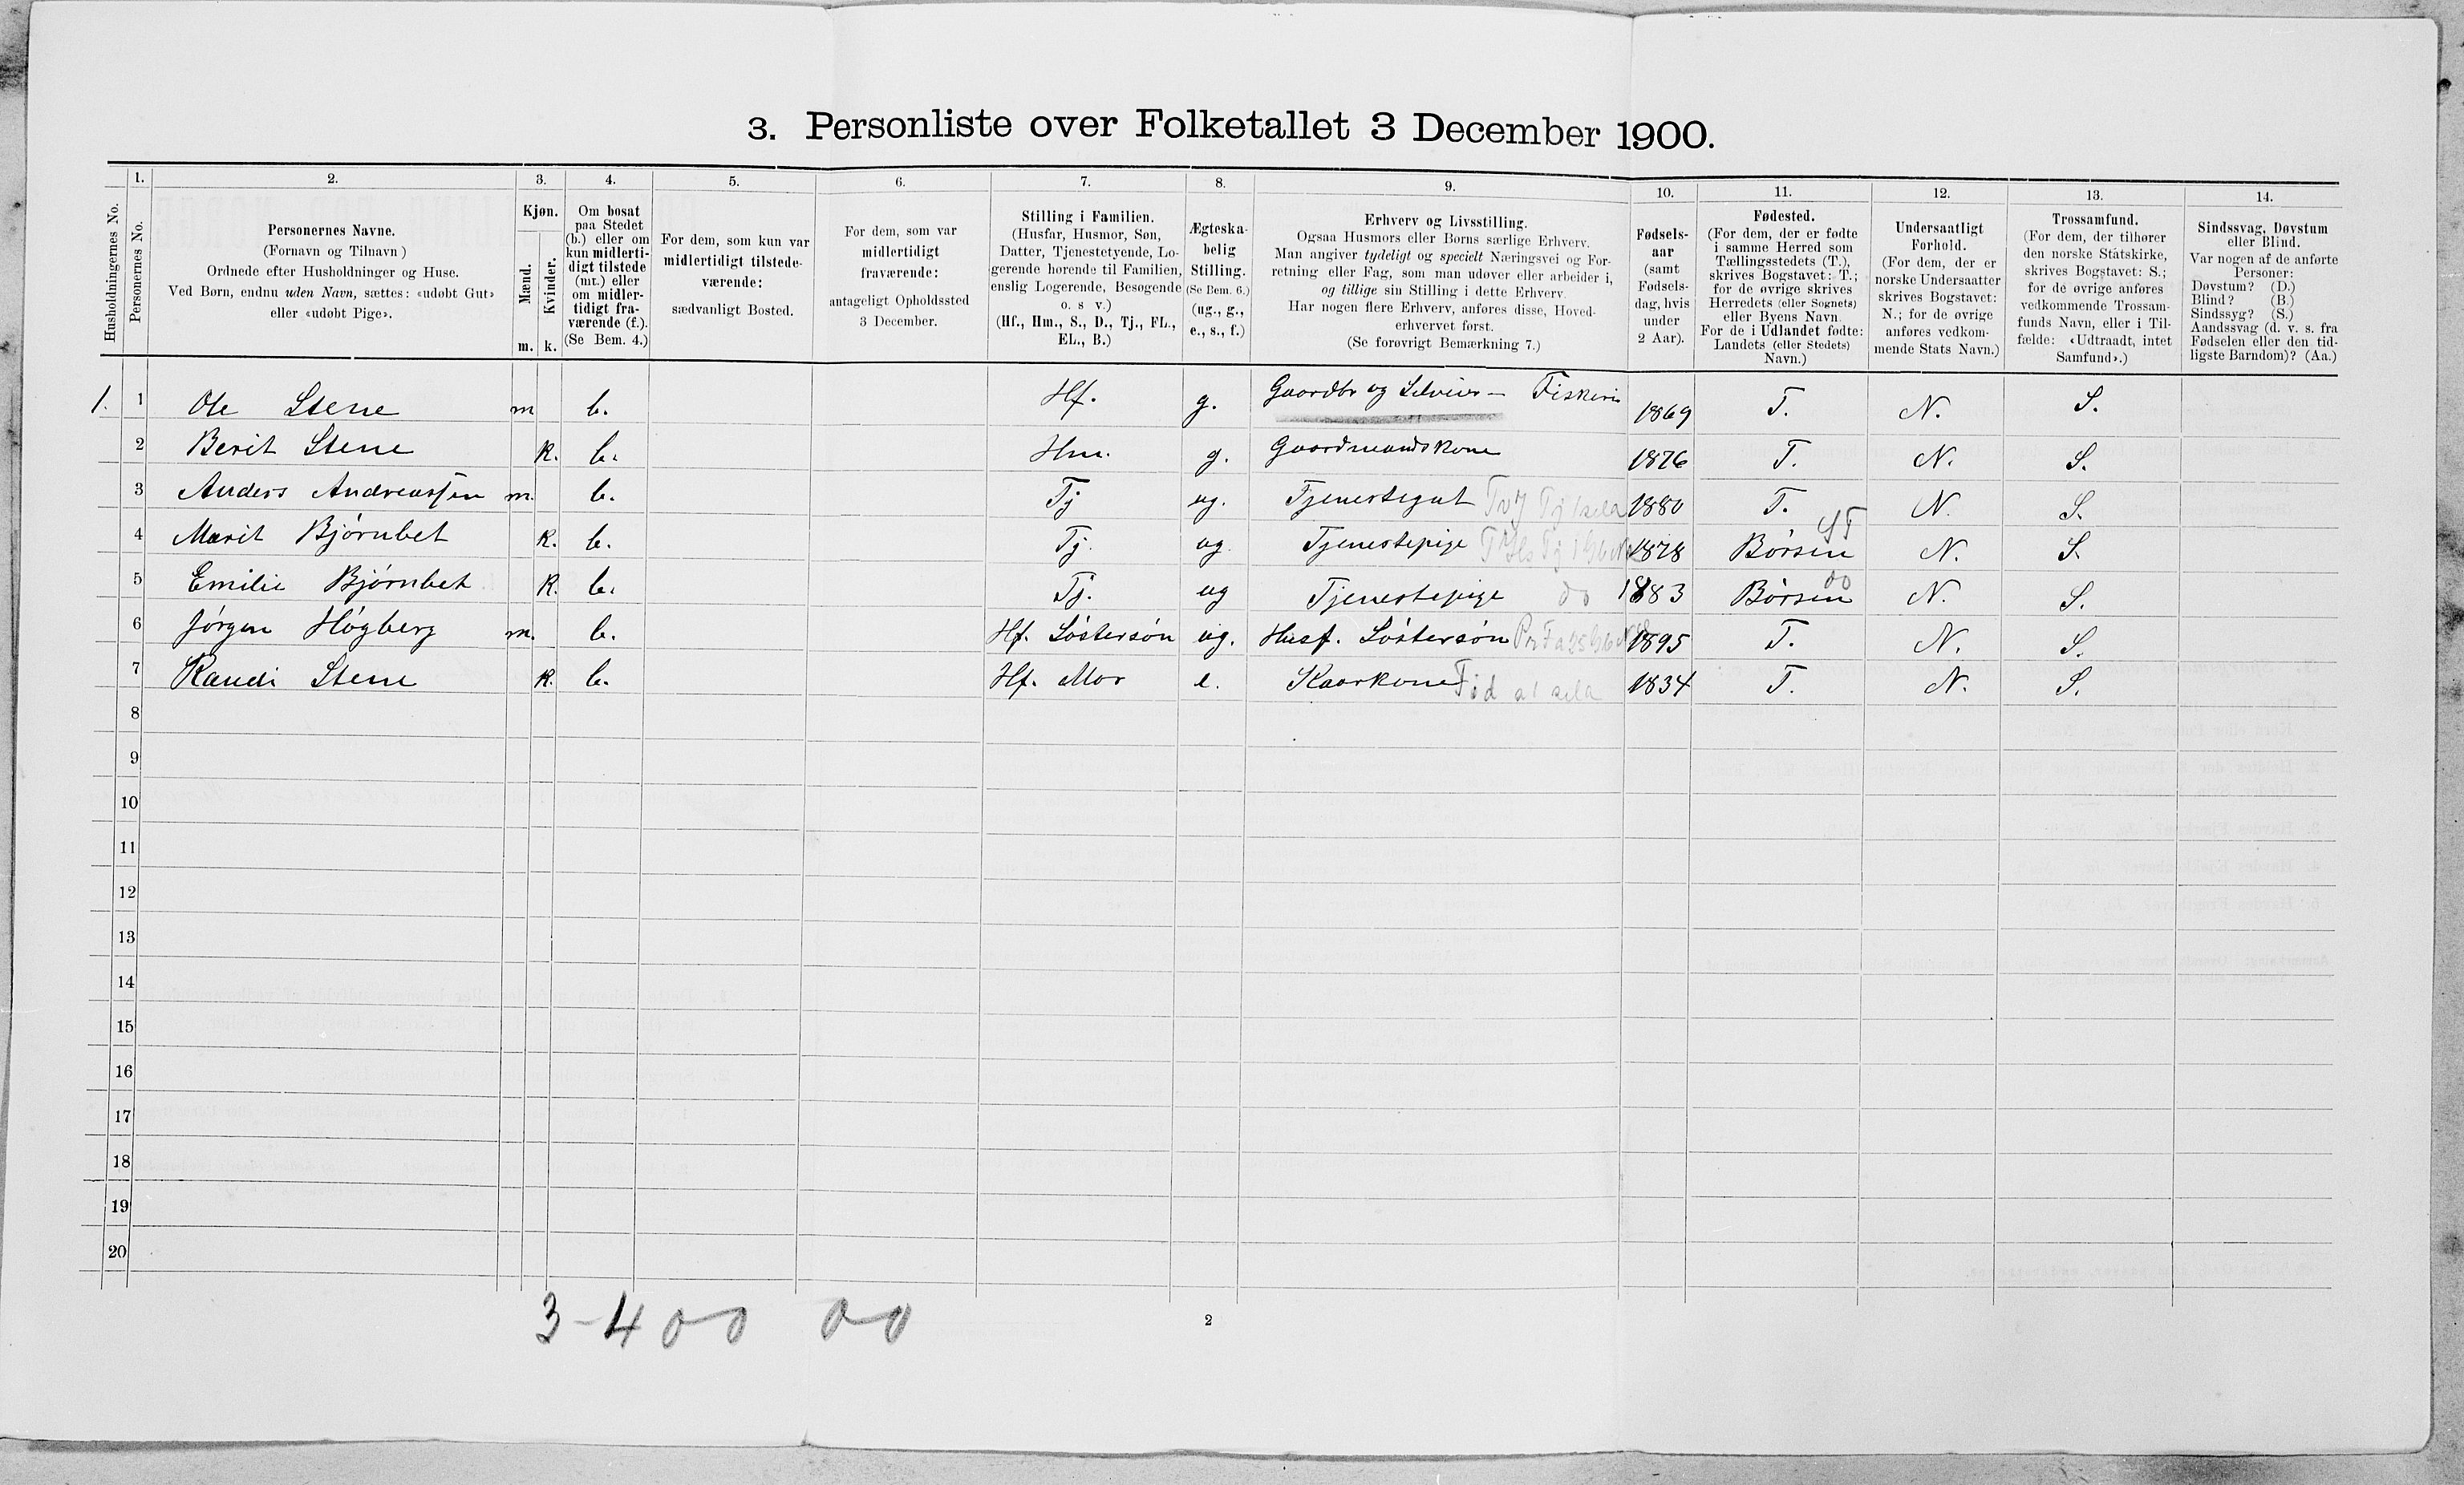 3. Personliste over Folketallet 3 December 1900.
1. 2. 3. 4. 5. 6. 7. 8. 9. 10. 11. 12. 13. 14.
Husholdningernes No.
Personernes No.
Personernes Navne.
(Fornavn og Tilnavn)
Ordnede efter Husholdninger og Huse.
Ved Børn, endnu uden Navn, sættes: «udøbt Gut»
eller «udøbt Pige».
Kjøn.
Mænd.
Kvinder.
m. k.
Om bosat
paa Stedet
(b.) eller om
kun midlerti-
digt tilstede
(mt.) eller
om midler-
tidigt fra-
værende (f.).
(Se Bem. 4.)
For dem, som kun var
midlertidigt tilstede-
værende:
sædvanligt Bosted.
For dem, som var
midlertidigt
fraværende:
antageligt Opholdssted
3 December.
Stilling i Familien.
(Husfar, Husmor, Søn,
Datter, Tjenestetyende, Lo-
gerende hørende til Familien,
enslig Logerende, Besøgende
o. s v.)
(Hf., Hm., S., D., Tj., FL.,
EL., B.)
Ægteska-
belig
Stilling.
(Se Bem. 6.)
(ug., g.,
e., s., f.)
Erhverv og Livsstilling.
Ogsaa Husmors eller Børns særlige Erhverv.
Man angiver tydeligt og specielt Næringsvei og For-
retning eller Fag, som man udøver eller arbeider i,
og tillige sin Stilling i dette Erhverv.
Har nogen flere Erhverv, anføres disse, Hoved-
erhvervet først.
(Se forøvrigt Bemærkning 7.)
Fødsels-
aar
(samt
Fødsels-
dag, hvis
under
2 Aar).
Fødested.
(For dem, der er fødte
i samme Herred som
Tællingsstedets (T.),
skrives Bogstavet: T.;
for de øvrige skrives
Herredets (eller Sognets)
eller Byens Navn.
For de i Udlandet fødte:
Landets (eller Stedets)
Navn.)
Undersaatligt
Forhold.
(For dem, der er
norske Undersaatter
skrives Bogstavet:
N.; for de øvrige
anføres vedkom-
mende Stats Navn.)
Trossamfund.
(For dem, der tilhører
den norske Statskirke,
skrives Bogstavet: S.;
for de øvrige anføres
vedkommende Trossam-
funds Navn, eller i Til-
fælde: «Udtraadt, intet
Samfund».)
Sindssvag, Døvstum
eller Blind.
Var nogen af de anførte
Personer:
Døvstum? (D.)
Blind? (B.)
Sindssyg? (S.)
Aandssvag (d. v. s. fra
Fødselen eller den tid-
ligste Barndom)? (Aa.)
1. 1 Ole Stene m b. Hf. g. Gaardbr og Selveier - Fiskeri 1869 T. N. S.
2 Berit Stene k. b. Hm. g. Gaardmandskone 1876 T. N. S.
3 Anders Andreassen m. b. Tj ug. Tjenestegut 1880 T. N. S.
4 Marit Bjørnbet k. b. Tj. ug Tjenestepige 1878 Børsen ST N. S.
5 Emilie Bjørnbet k. b. Tj. ug Tjenestepige do 1883 Børsen do N. S.
6 Jørgen Høgberg m. b. Hf. Søstersøn ug. Husf. Søstersøn 1895 T. N. S.
7 Randi Stene k. b. Hf. Mor e. Kaarkone 1834 T. N. S.
8
9
10
11
12
13
14
15
16
17
18
19
20
3-4 0-0 0-0
2